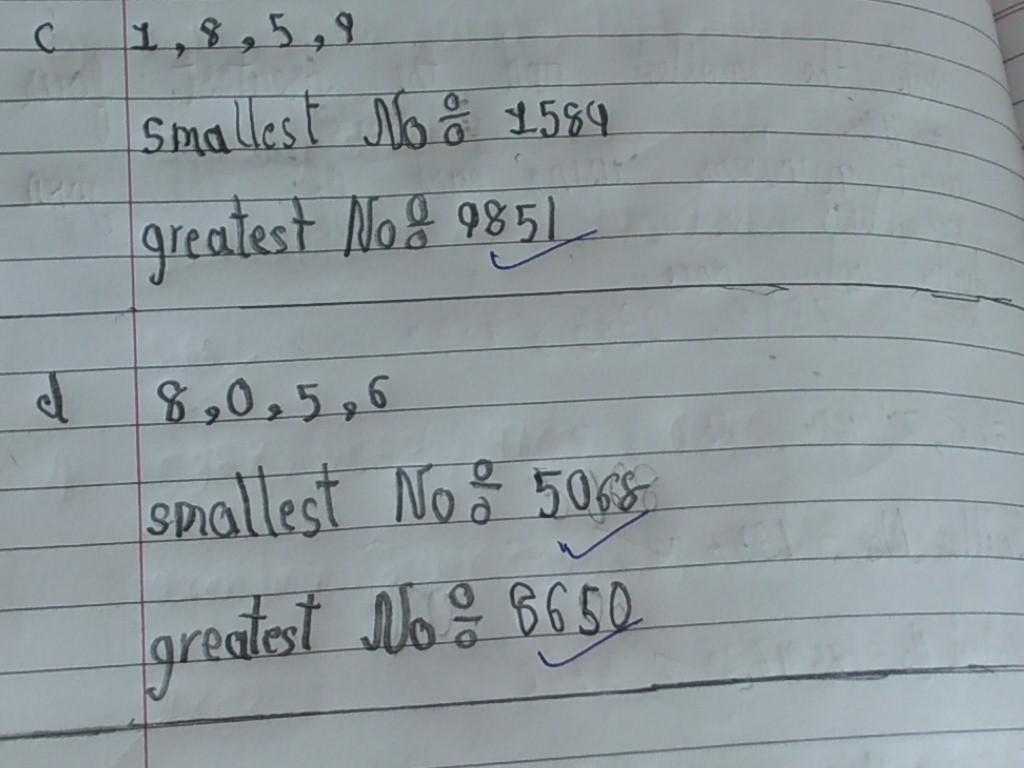 c 1, 8, 5, 9
smallest No: 1589
greatest No: 9851
d 8, 0, 5, 6
smallest No: 5068
greatest No: 8650